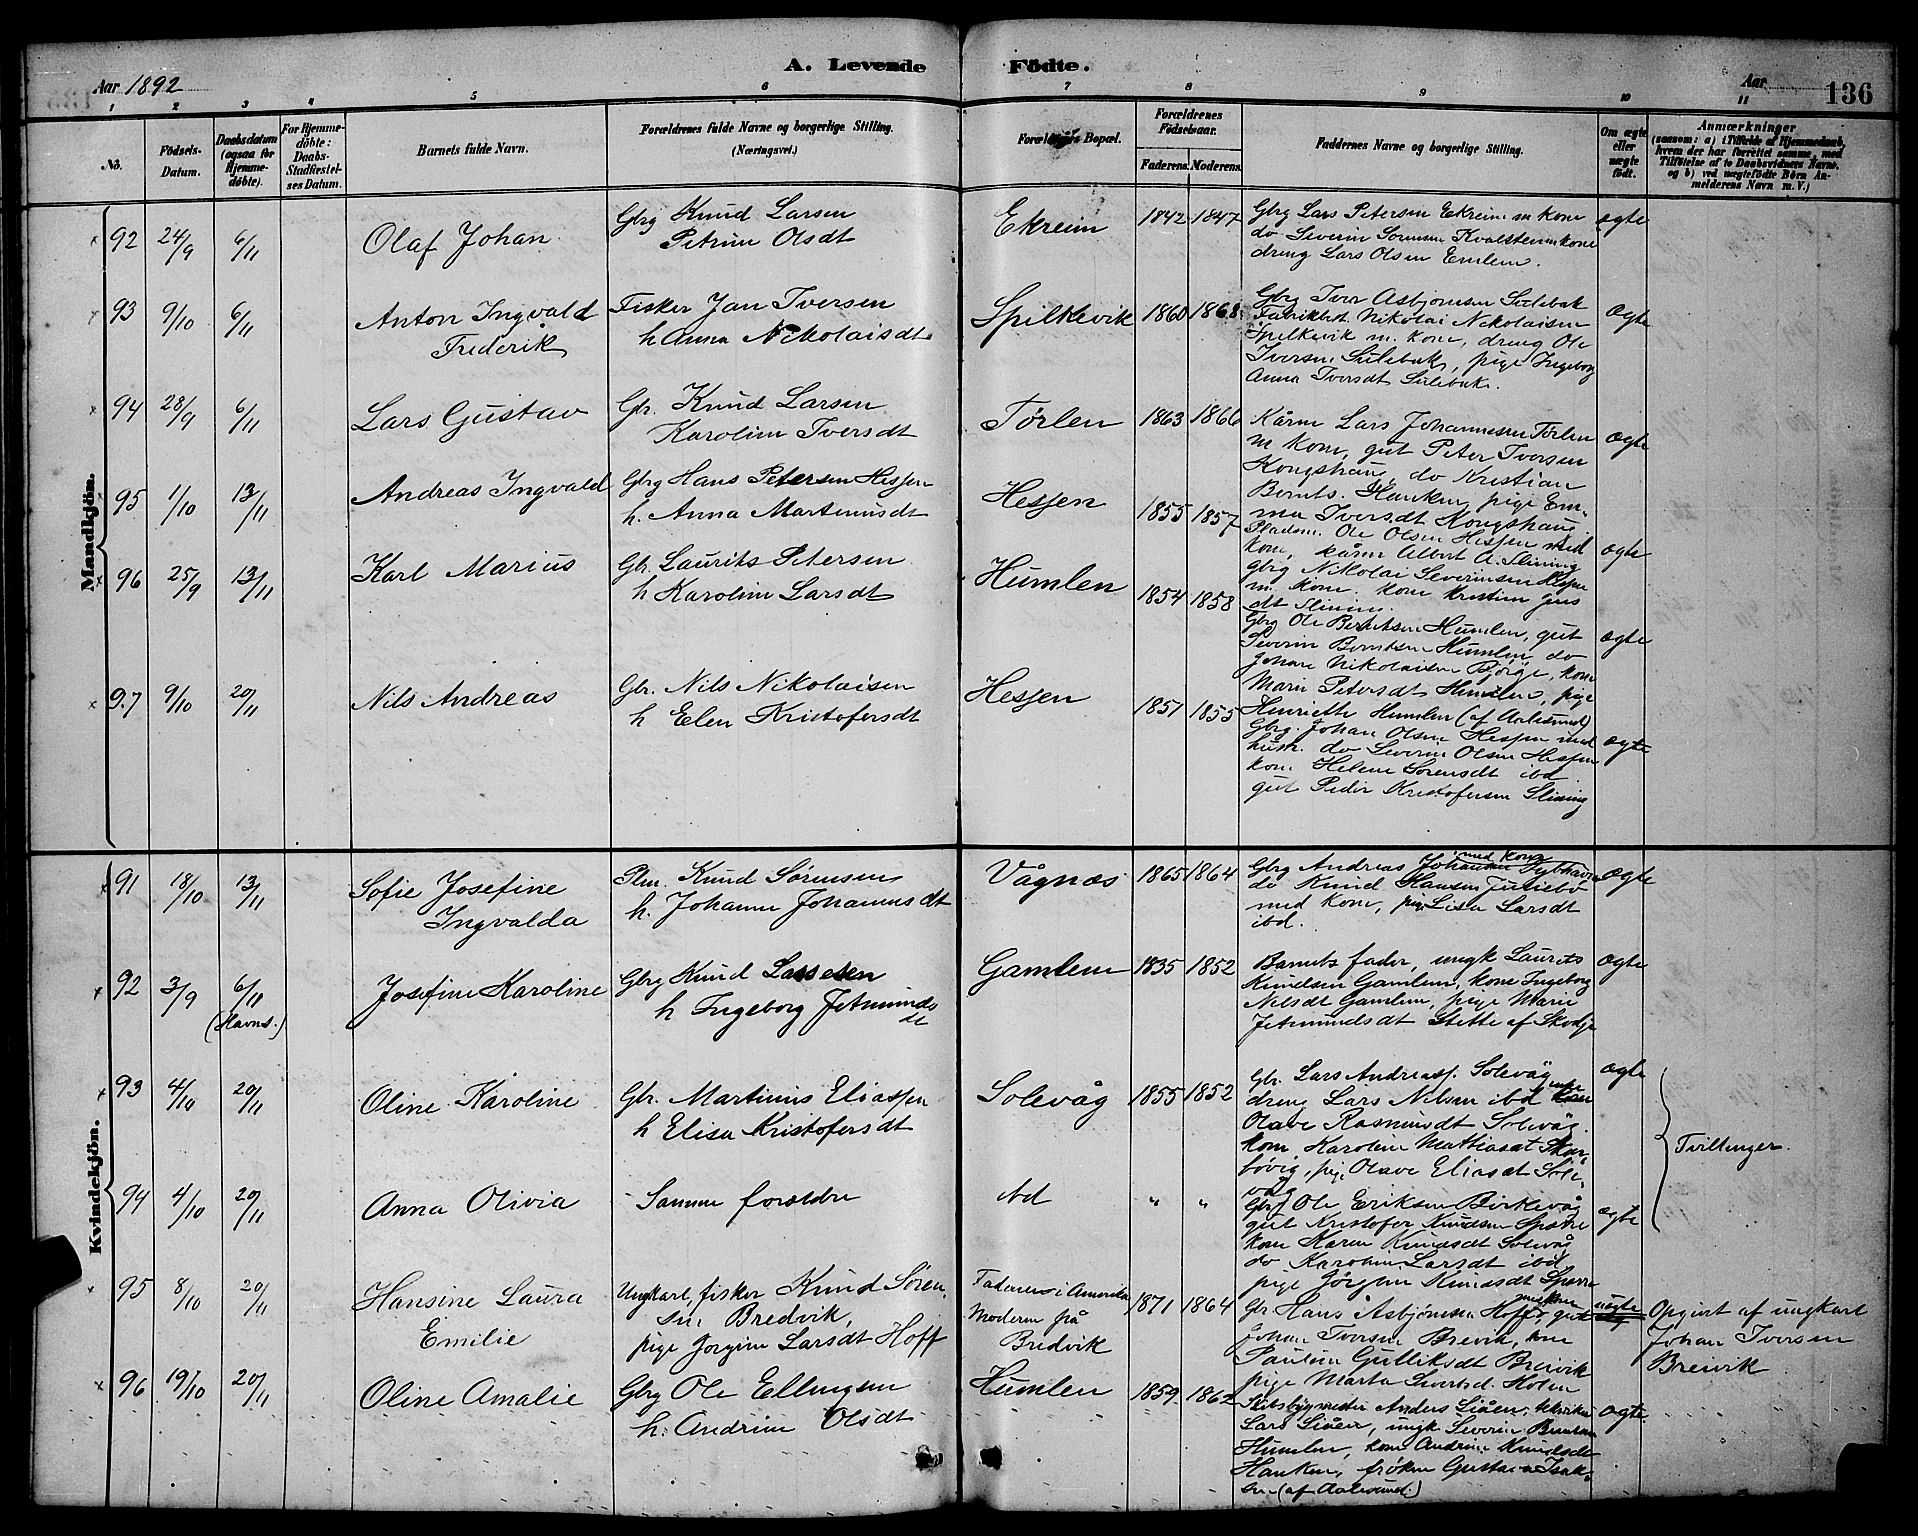 A. Levende Födte.
Aar 1892
Aar 136
1 2 3 4 5 6 7 8 9 10 11
No.
Födsels-Datum.
Daabsdatum (ogsaa for Hjemme-döbte).
For Hjemme-döbte: Daabs-Stadfæstel-ses Datum.
Barnets fulde Navn.
Forældrenes fulde Navne og borgerlige Stilling. (Næringsvei.)
Forældrenes Bopæl.
Forældrenes Födselsaar.
Faderens. Moderens.
Faddernes Navne og borgerlige Stilling.
Om ægte eller uægte födt.
Anmærkninger
(saasom: a) i Tilfælde af Hjemmedaab, hvem der har forrettet samme, med Tilföielse af to Daabsvidners Navne, og b) ved uægtefödte Börn An-melderens Navn m. V.)
Mandkjön.
92 24/9 6/11 Olaf Johan
Gbrg Knud Larsen
Petrine Olsdt
Ekreim 1842 1847
Gbrg Lars Petersen Ekreim m kone
do Severin Sørensen Kvalsten m kone
dreng Lars Olsen Emlem.
ægte
93 9/10 6/11 Anton Ingvald
Frederik
Fisker Jan Iversen
h Anna Nikolaisdt
Spilkevik 1860 1868
Gbrg Iver Asbjørnsen Sulebak
Fabrikbst. Nikolai Nikolaisen
Spilkevik m. kone, dreng Ole
Iversen Sulebak, pige Ingeborg
Anna Iversdt Sulebak.
ægte
94 28/9 6/11 Lars Gustav
Gbr. Knud Larsen
Karoline Iversdt
Tørlen 1863 1866
Kårm Lars Johannesen Tørlen
m kone, gut Peter Iversen
Kongshaug, do Kristian
Bernts. Hanken, pige Em-
ma Iversdt Kongshaug
ægte
95 1/10 13/11 Andreas Ingvald
Gbrg Hans Petersen Hessen
h. Anna Martinusdt
Hessen 1855 1857
Pladsm. Ole Olsen Hessen med
kone, kårm Albert A. Slining
gbrg Nikolai Severinsen Hessen
m. kone. kone Kristine Jens
dt Slining.
ægte
96 25/9 13/11 Karl Marius
Gbr. Laurits Petersen
h Karoline Larsdt
Humlen 1854 1858
Gbrg Ole Berntsen Humlen, gut
Severin Berntsen Humlen do
Johan Nikolaisen Bjørge, kone
Marie Petersdt Humlen, pige
Henriette Humlen (af Aalesund)
ægte
97 9/10 20/11 Nils Andreas
Gbr. Nils Nikolaisen
h Elen Kristofersdt
Hessen 1851 1855
Gbrg. Johan Olsen Hessen med
hust. do Severin Olsen Hessen
kone Helene Sørensdt ibd
gut Peder Kristofersen Slining
ægte
Kvindekjön.
91 18/10 13/11 Sofie Josefine
Ingvalda
Plm. Knud Sørensen
h. Johanne Johannesdt
Vågnæs 1865 1864
med kone
Gbrg Andreas Johannesen Dybhavn
do Knud Hansen Julsebø
med kone, pige Lisa Larsdt
ibd.
ægte
92 3/9 6/11 (Havns.) Josefine Karoline
Gbrg Knud Lassesen
h Ingeborg Jetmunds
dt
Gamlem 1835 1852
Barnets fader, ungk Laurits
Knudsen Gamlem, kone Ingeborg
Nilsdt Gamlem, pige Marie
Jetmundsdt Stette af Skodje
ægte
93 4/10 20/11 Oline Karoline
Gbr. Martinus Eliassen
h Elisa Kristofersdt
Solevåg 1855 1852
Gbr. Lars Andreass. Solevåg
dreng Lars Nilsen ibd
Olave Rasmusdt Solevåg.
kone Karoline Mattiasdt Skar-
bøvig, pige Olave Eliasdt Sole-
våg
ægte
Tvillinger.
94 4/10 20/11 Anna Olivia
Samme forældre
ibd " "
Gbr. Ole Eriksen Birkevåg
gut Kristofer Knudsen Sperre
kone Karen Knudsdt Solevåg
do Karoline Larsdt ibd
pige Jørgine Knudsdt Sperre
ægte
95 8/10 20/11 Hansine Laura
Emilie
Ungkarl, fisker Knud Søren-
sen Bredvik,
pige Jørgine Larsdt Hoff
Faderen i Amerika
Moderen på
Bredvik
1871 1864
Gbr. Hans Asbjørnsen Hoff, gut
Johan Iversen Brevik, kone
Pauline Gulliksdt Breivik
pige Marta Sivertsd. Holen
uægte
Opgivet af ungkarl
Johan Iversen
Breivik
96 19/10 20/11 Oline Amalie
Gbrg Ole Ellingsen
h. Andrine Olsdt
Humlen 1859 1862
Skibsbygmester Anders Liåen,
Lars Liåen, ungk Severin Berntsen
Humlen, kone Andrine Knudsdt
Hanken, frøken Gustava Isak-
sen (af Aalesund.)
ægte